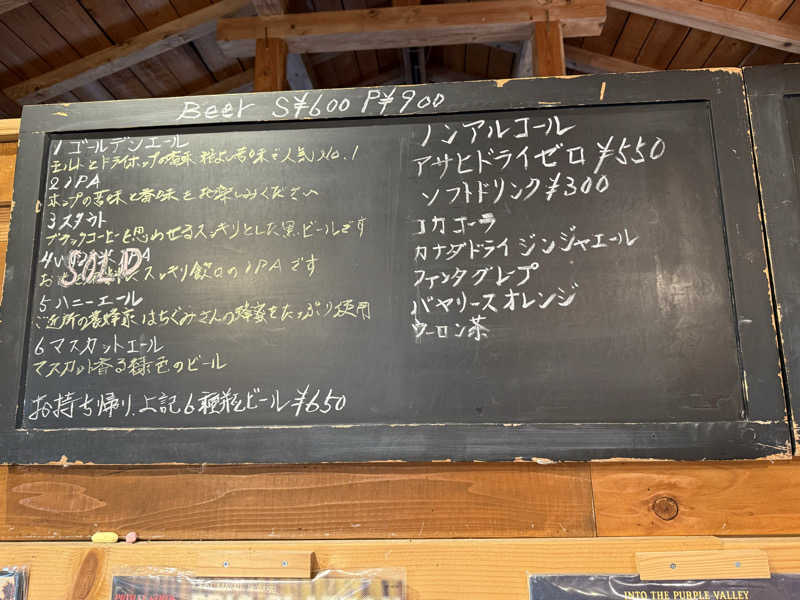 Beer S¥600 P¥900
1 ゴールデンエール
モルトとドライホップの香味 程よい苦味で人気No.1
2 IPA
ホップの苦味と香味をお楽しみください
3 スタウト
ブラックコーヒーを思わせるスッキリとした黒ビールです
4 PA
SOLD
スッキリ飲口のIPAです
5 ハニーエール
ご近所の養蜂家 はちぐみさんの蜂蜜をたっぷり使用
6 マスカットエール
マスカット香る緑色のビール
お持ち帰り、上記6種瓶ビール¥650
ノンアルコール
アサヒドライゼロ ¥550
ソフトドリンク ¥300
コカコーラ
カナダドライジンジャエール
ファンタグレープ
バヤリースオレンジ
ウーロン茶
INTO THE PURPLE VALLEY